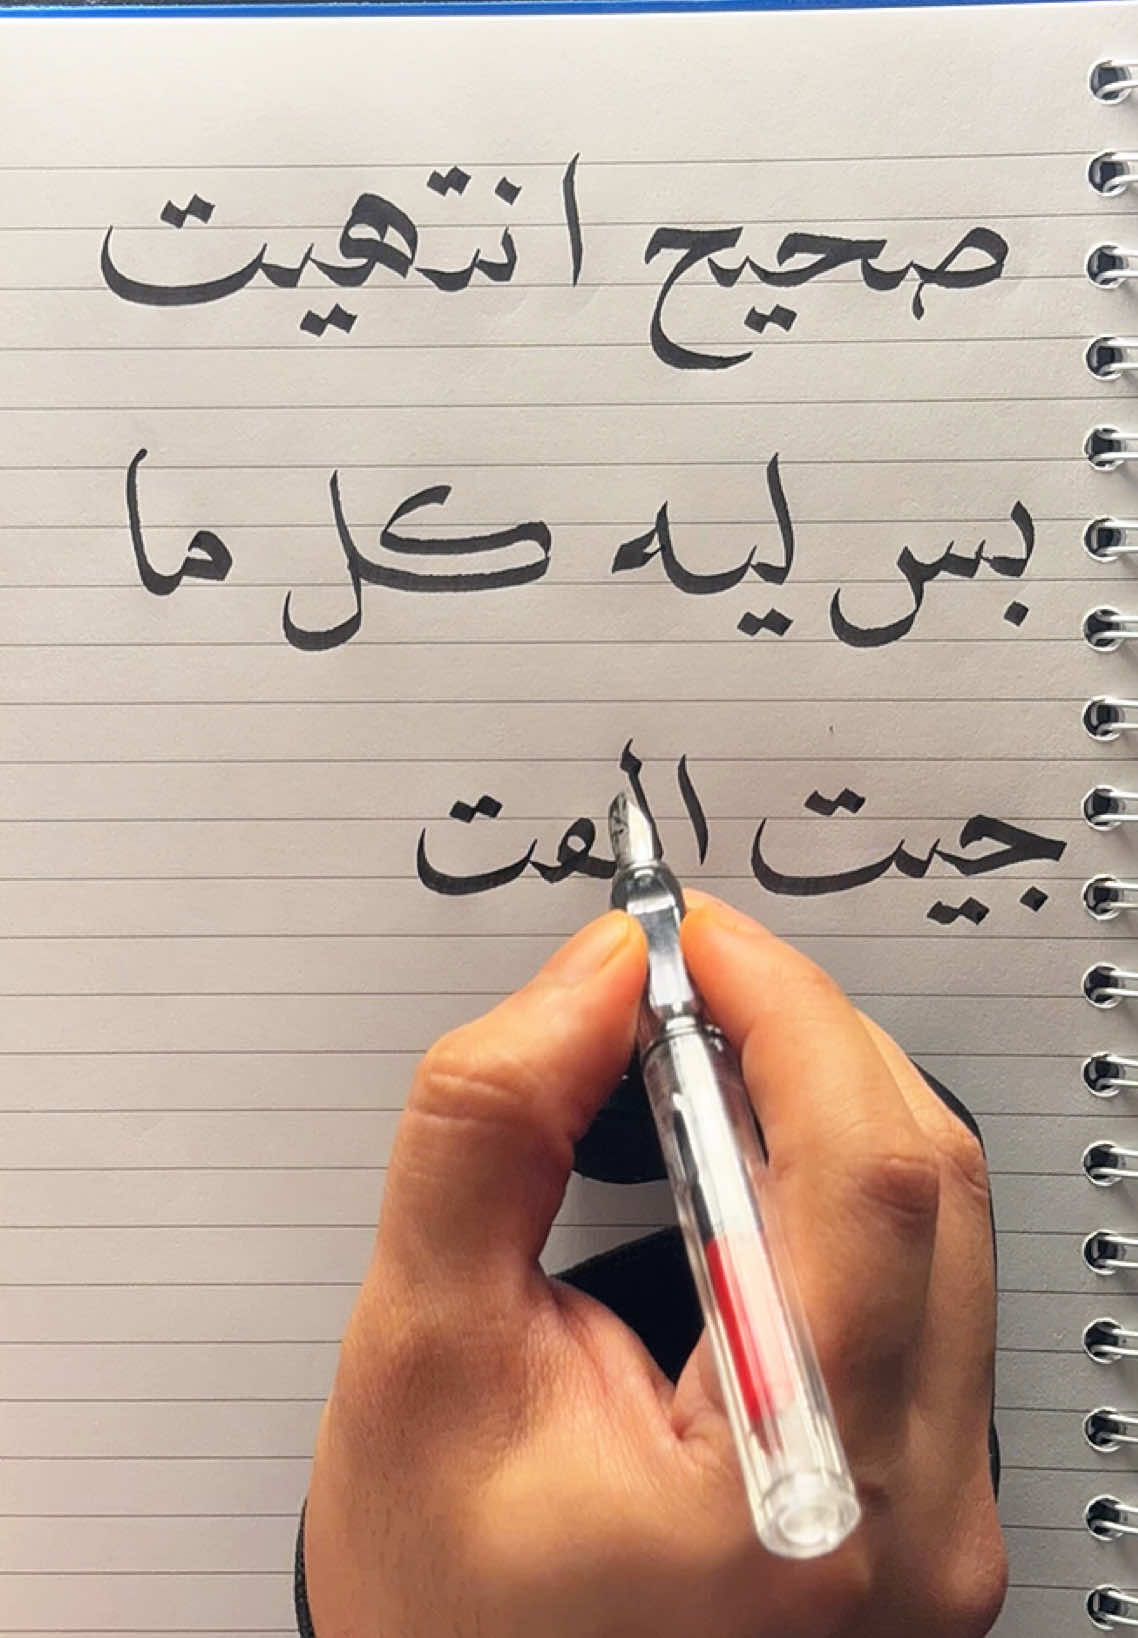 صحيح انتهيت
بس ليه كل ما
جيت